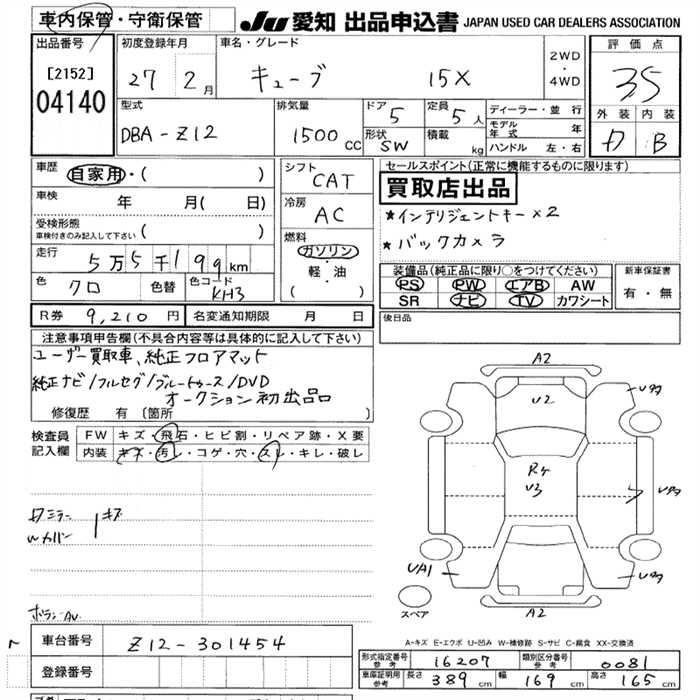 車内保管・守衛保管
JU 愛知 出品申込書 JAPAN USED CAR DEALERS ASSOCIATION
出品番号
[2152]
04140
初度登録年月
27 2月
車名・グレード
キューブ 15X
2WD・4WD
評価点
3.5
外装 内装
B
型式
DBA-Z12
排気量
1500 CC
ドア
5
形状
SW
定員
5人
積載
kg
ディーラー・並行
モデル年式 年
ハンドル 左・右
車歴
自家用・( )
車検
年 月(日)
受検形態
車検付きのみ記入して下さい ( )
走行
5万5千199km
色
クロ
色替
色コード
KH3
シフト
CAT
冷房
AC
燃料
ガソリン・軽・油
( )
セールスポイント(正常に機能するものに限ります)
買取店出品
★インテリジェントキー×2
★バックカメラ
装備品(純正品に限り○をつけてください)
PS PW エアB AW
SR ナビ TV カワシート
新車保証書
有・無
R券 9,210円
名変通知期限 月 日
後日品
注意事項申告欄(不具合内容等は具体的に記入して下さい)
ユーザー買取車、純正フロアマット
純正ナビ/フルセグ/ブルートゥース/DVD
オークション初出品
修復歴 有 [箇所 ]
検査員記入欄
FW キズ・飛石・ヒビ割・リペア跡・X要
内装 キズ・汚レ・コゲ・穴・スレ・キレ・破レ
キズ
A2
U2
U3
UA1
A2
スペア
A-キズ E-エクボ U-凹み W-補修跡 S-サビ C-腐食 XX-交換済
車台番号 Z12-301454
登録番号
形式指定番号 参考 16207
類別区分番号 参考 0081
車庫証明用 参考 長さ 389cm 幅 169cm 高さ 165cm